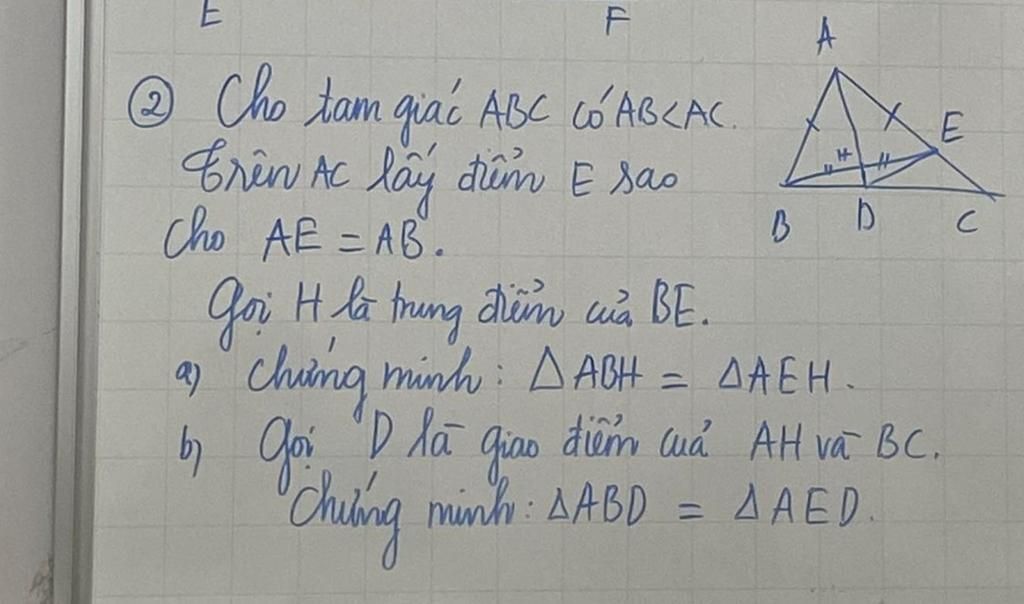 E F
② Cho tam giác ABC có AB<AC.
Trên AC lấy điểm E sao
cho AE = AB.
Gọi H là trung điểm của BE.
a) Chứng minh: △ABH = △AEH.
b) Gọi D là giao điểm của AH và BC.
Chứng minh: △ABD = △AED.
A
E
H
B D C